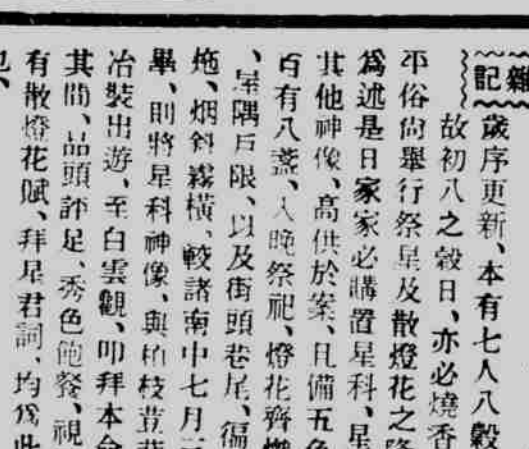 雜記
歲序更新、本有七人八穀
故初八之穀日、亦必燒香
平俗尙舉行祭星及散燈花之
爲述是日家家必購置星科、星
其他神像、高供於案、且備五色
百有八盞、入晚祭祀、燈花齊燃
、屋隅戶限、以及街頭巷尾、徧
炧、烟斜霧橫、較諸南中七月
畢、則將星科神像、與柏枝荳
冶裝出遊、至白雲觀、叩拜本命
其間、品頭評足、秀色飽餐、視
有散燈花賦、拜星君詞、均爲此
也、